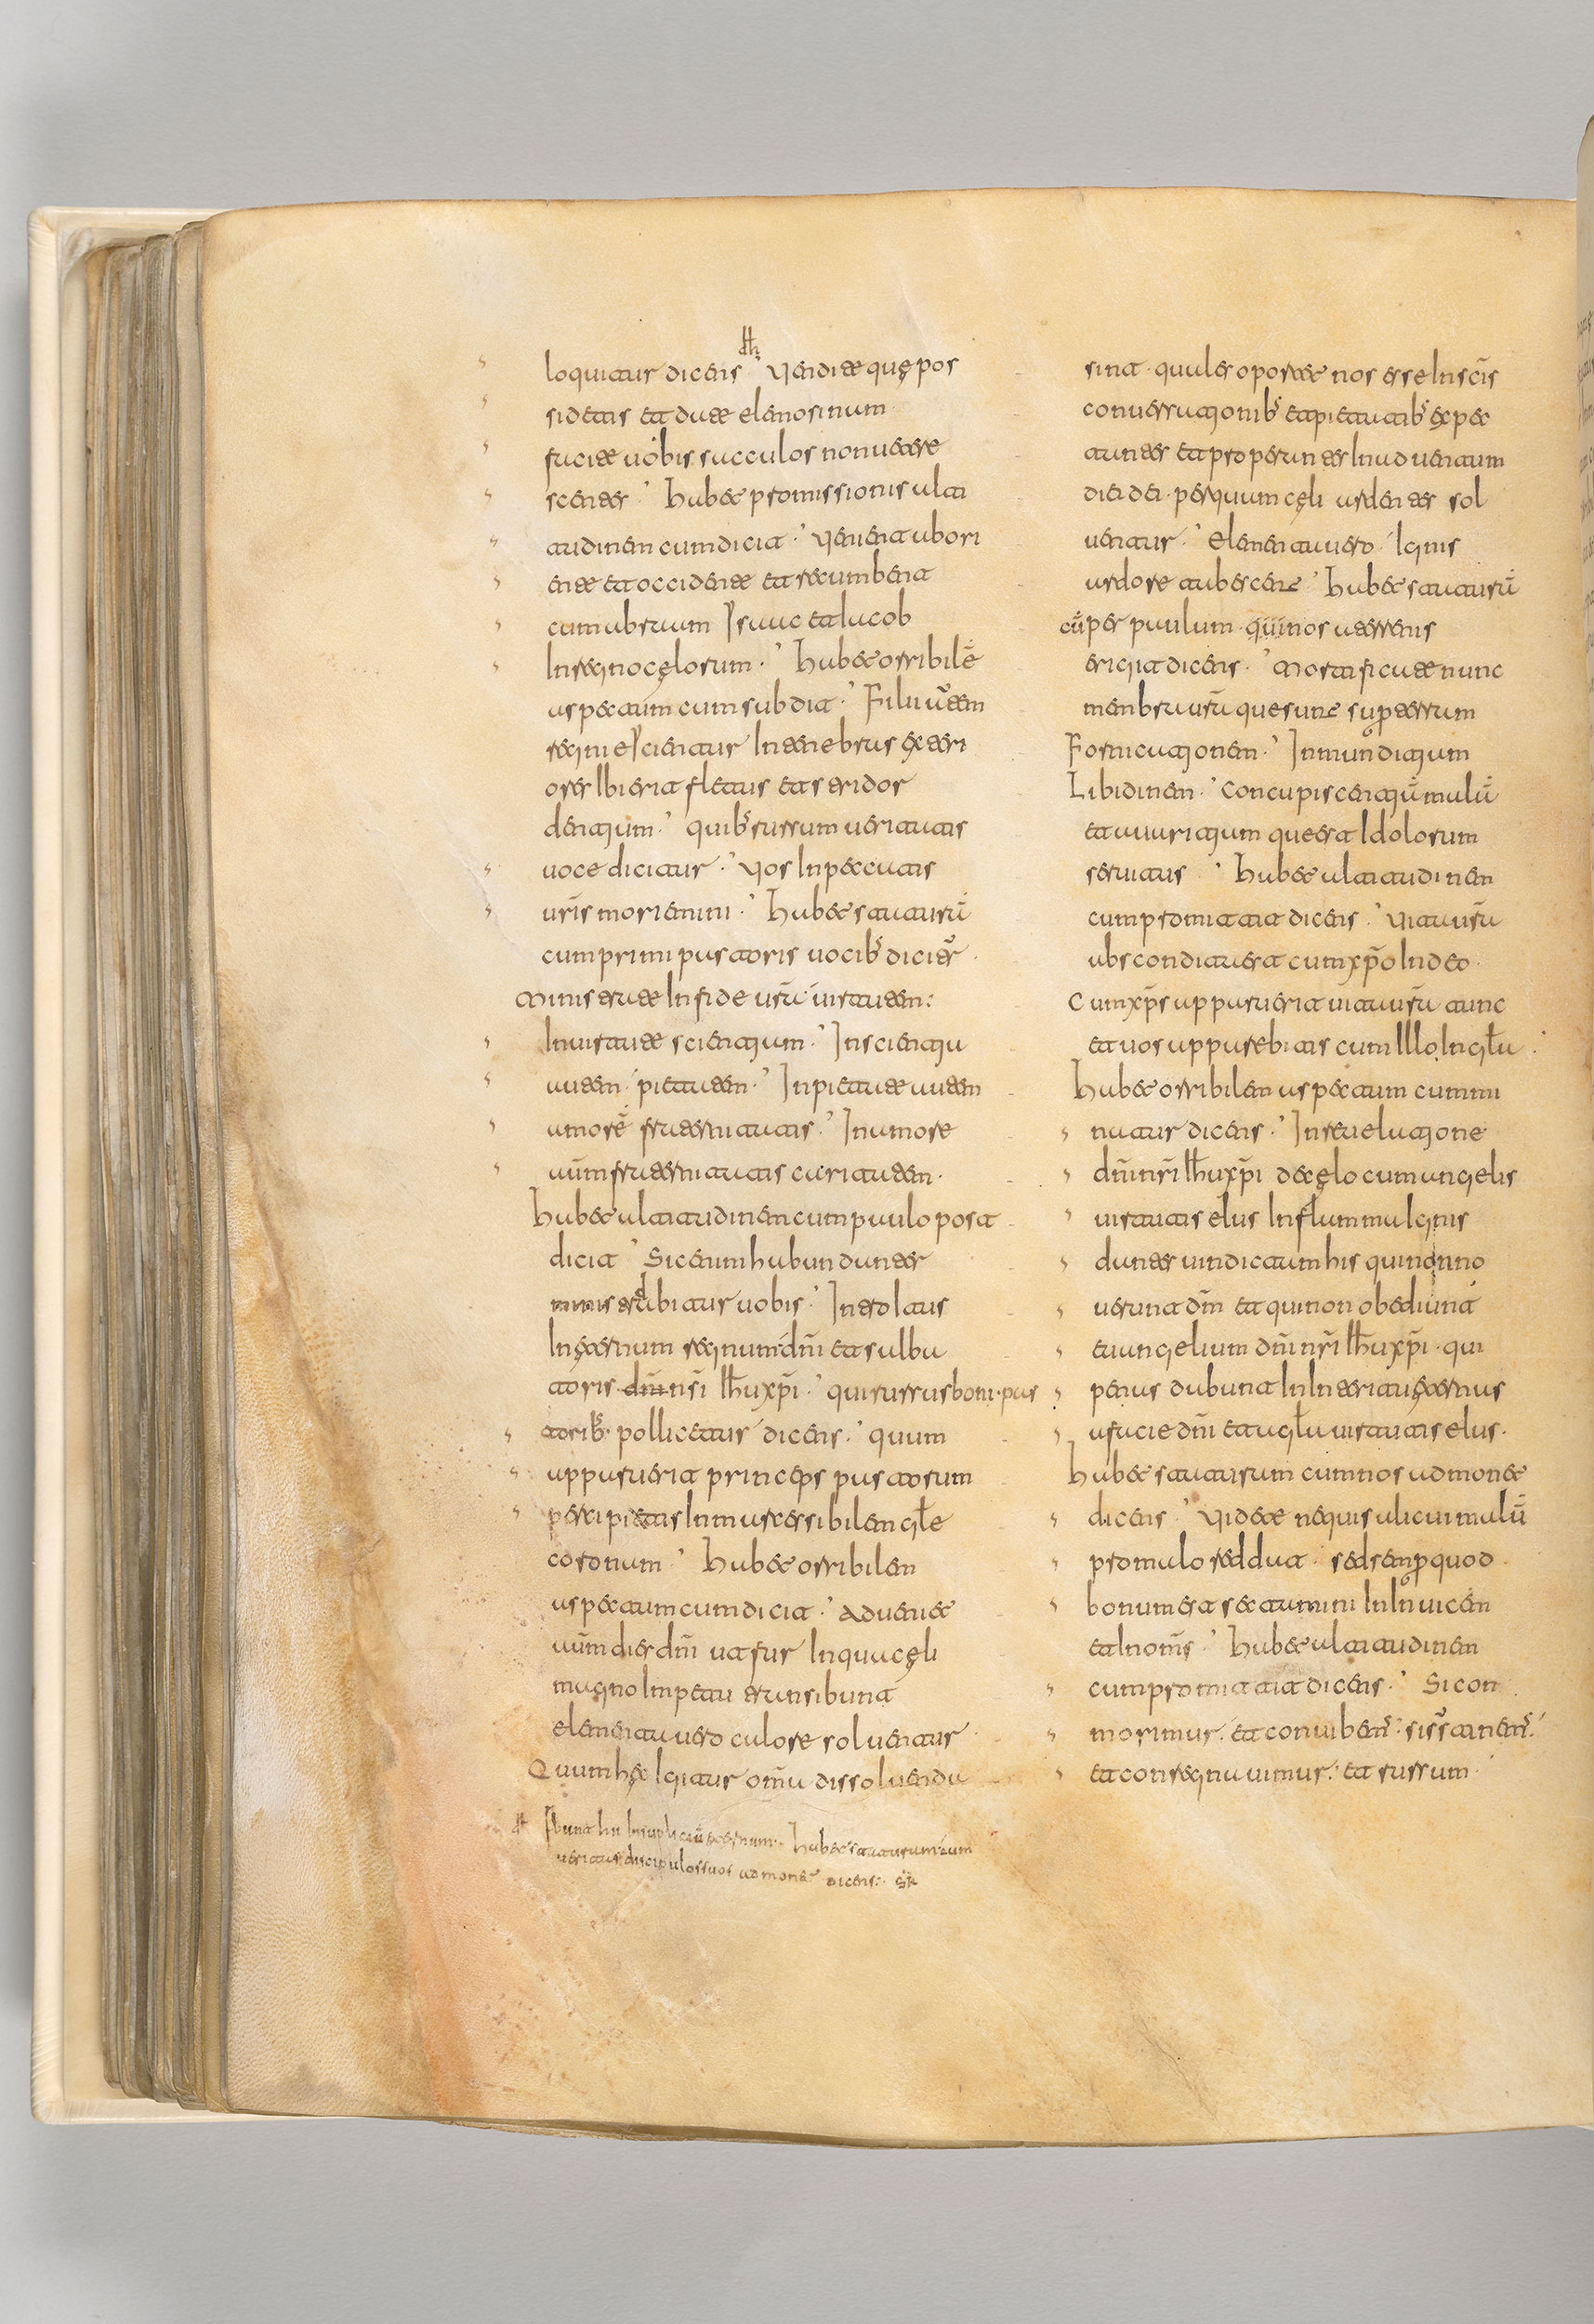 dh̄
loquitur dicens · Vendite quę pos
sidetis et date elemosinam
facite uobis sacculos non uetere
scentes · Habet promissionis alti
tudinem cum dicit · Venient ab ori
ente et occidente et recumbent
cum abraam Isaac et iacob
In regno cęlorum · Habet orribilē
aspectum cum subdit · Filii ū̄tem
regni eicientur In tenebras exteri
ores Ibi erit fletus et stridor
dentium · quibꝰ rursum ueritatis
uoce dicitur · Vos In peccatis
ur̄is moriemini · Habet staturā
cum primi pastoris uocibꝰ dicitr̄
Ministrate In fide ur̄a uirtutem:
In uirtute scientiam · In scientia
autem pietatem · In pietate autem
amorē fraternitatis · In amore
aūm fraternitatis caritatem ·
Habet altitudinem cum paulo post
dicit · Sic enim habundanter
ministrabitur uobis · Introitus
In ęternum regnum dn̄i et salba
toris dn̄i nr̄i Ih̄u xp̄i · qui rursus boni · pas
toribꝰ pollicetur dicens · quum
apparuerit princeps pastorum
percipietis Inmarcessibilem gl̄e
coronam · Habet orribilem
aspectum cum dicit · Adueniet
aūm dies dn̄i ut fur In qua cęli
magno Impetu transibunt
elementa uero calore soluentur
Quum hęc Igitur om̄a dissoluenda
dh̄ Ibunt hii In supliciū ęternum · habet staturam cum
ueritas discipulos suos admonet dicens: sr̄
sint · quales oportet nos esse In sc̄is
conuersationibꝰ et pietatibꝰ expec
tantes et properantes In aduentum
diei dei · per quam cęli ardentes sol
uentur · elementa uero Ignis
ardore tabescent · Habet staturā
cū per paulum · quī nos uertens
erigit dicens · Mortificate nunc
membra ur̄a que sunt super terram
Fornicationem · Inmunditiam
Libidinem · Concupiscentiā malā
et auaritiam que est Idolorum
seruitus · Habet altitudinem
cum promittit dicens · Vita ur̄a
abscondita est cum xp̄o In deo ·
Cum xp̄s apparuerit uita ur̄a tunc
et uos apparebitis cum Illo In gl̄a ·
Habet orribilem aspectum cum mi
natur dicens · In reuelatione
dn̄i nr̄i Ih̄u xp̄i de cęlo cum angelis
uirtutis eius In flamma Ignis
dantes uindictam his qui non no
uerunt dn̄m et qui non obediunt
euangelium dn̄i nr̄i Ih̄u xp̄i · qui
penas dabunt In Interitu ęternas
a facie dn̄i et a gl̄a uirtutis eius ·
Habet staturam cum nos admonet
dicens · Videte ne quis alicui malū
pro malo reddat · sed semper quod
bonum est sectamini In Inuicem
et In om̄s · Habet altitudinem
cum promittit dicens · Si con
morimur · et conuibemꝰ · si sustinemꝰ ·
et conregnauimus · et rursum ·